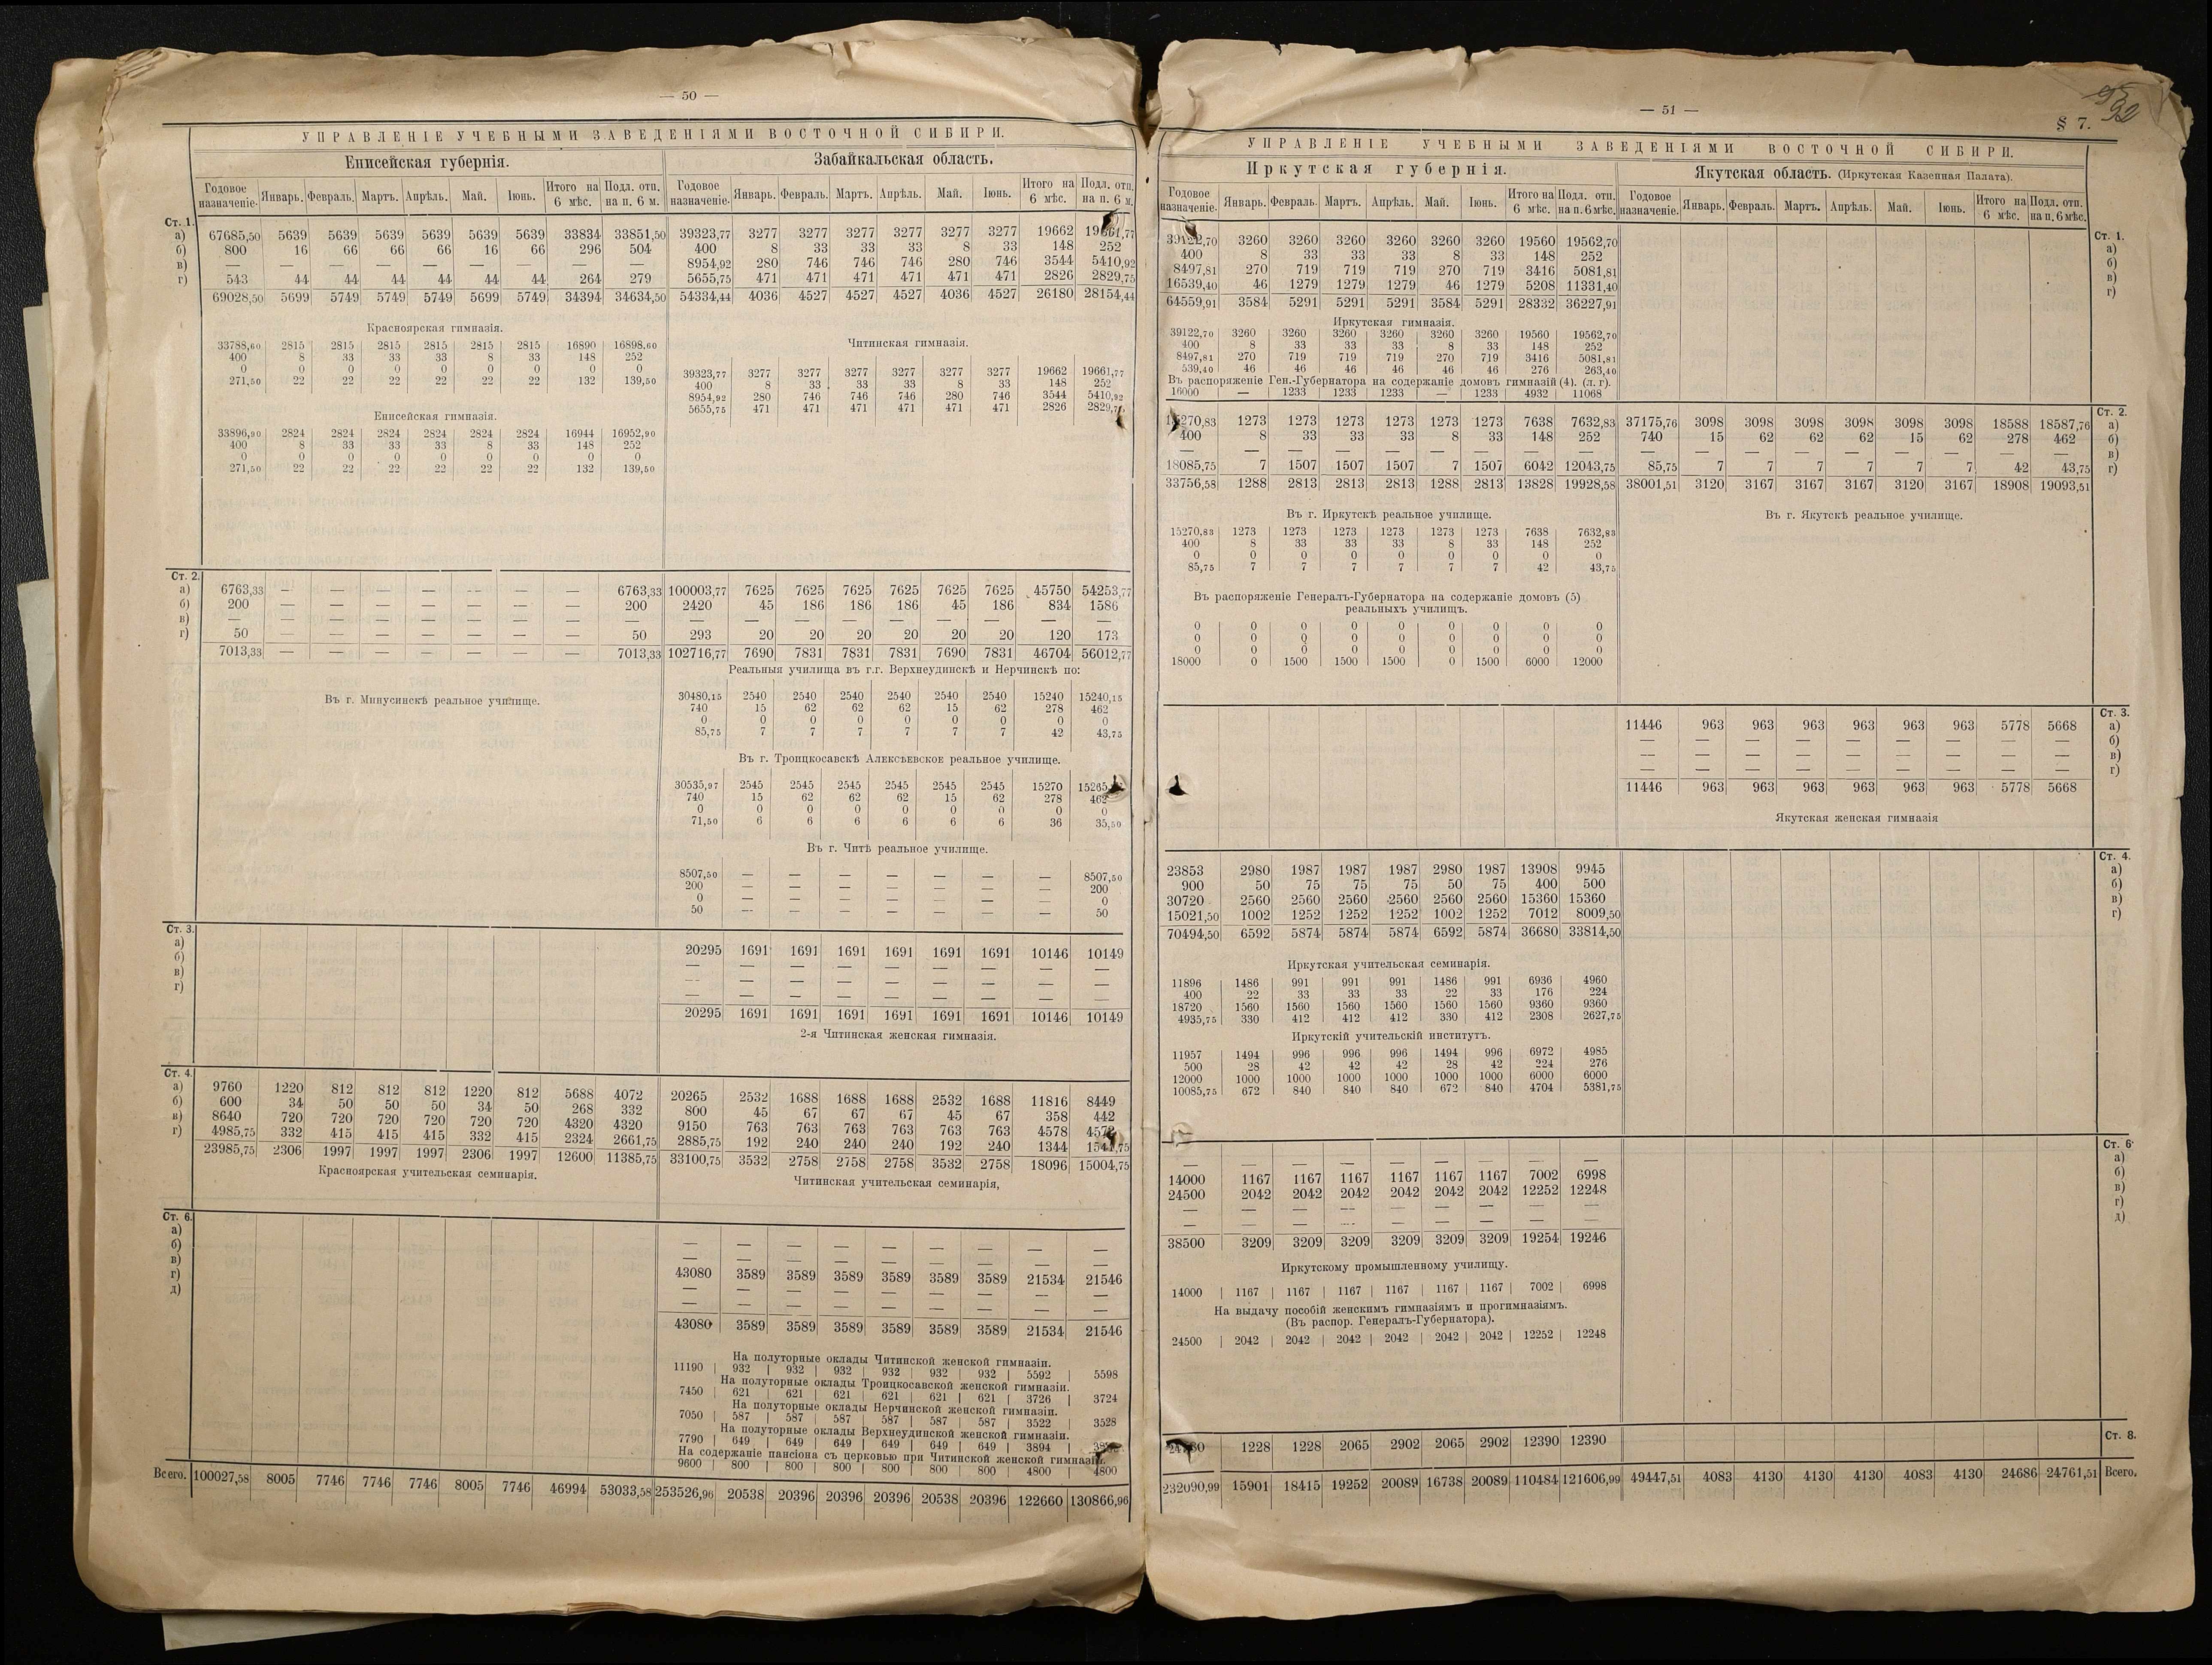 — 50 —
УПРАВЛЕНІЕ УЧЕБНЫМИ ЗАВЕДЕНІЯМИ ВОСТОЧНОЙ СИБИРИ.
Енисейская губернія.
Годовое назначеніе. Январь. Февраль. Мартъ. Апрѣль. Май. Іюнь. Итого на 6 мѣс. Подл. отп. на п. 6 м.
Ст. 1.
а) 67685,50 5639 5639 5639 5639 5639 5639 33834 33851,50
б) 800 16 66 66 66 16 66 296 504
в) — — — — — — — — —
г) 543 44 44 44 44 44 44 264 279
69028,50 5699 5749 5749 5749 5699 5749 34394 34634,50
Красноярская гимназія.
33788,60 2815 2815 2815 2815 2815 2815 16890 16898,60
400 8 33 33 33 8 33 148 252
0 0 0 0 0 0 0 0 0
271,50 22 22 22 22 22 22 132 139,50
Енисейская гимназія.
33896,90 2824 2824 2824 2824 2824 2824 16944 16952,90
400 8 33 33 33 8 33 148 252
0 0 0 0 0 0 0 0 0
271,50 22 22 22 22 22 22 132 139,50
Ст. 2.
а) 6763,33 — — — — — — — 6763,33
б) 200 — — — — — — — 200
в) — — — — — — — —
г) 50 — — — — — — — 50
7013,33 — — — — — — — 7013,33
Въ г. Минусинскѣ реальное училище.
Ст. 3.
а)
б)
в)
г)
Ст. 4.
а) 9760 1220 812 812 812 1220 812 5688 4072
б) 600 34 50 50 50 34 50 268 332
в) 8640 720 720 720 720 720 720 4320 4320
г) 4985,75 332 415 415 415 332 415 2324 2661,75
23985,75 2306 1997 1997 1997 2306 1997 12600 11385,75
Красноярская учительская семинарія.
Ст. 6.
а)
б)
в)
г)
д)
Всего. 100027,58 8005 7746 7746 7746 8005 7746 46994 53033,58
Забайкальская область.
Годовое назначеніе. Январь. Февраль. Мартъ. Апрѣль. Май. Іюнь. Итого на 6 мѣс. Подл. отп. на п. 6 м.
39323,77 3277 3277 3277 3277 3277 3277 19662 19661,77
400 8 33 33 33 8 33 148 252
8954,92 280 746 746 746 280 746 3544 5410,92
5655,75 471 471 471 471 471 471 2826 2829,75
54334,44 4036 4527 4527 4527 4036 4527 26180 28154,44
Читинская гимназія.
39323,77 3277 3277 3277 3277 3277 3277 19662 19661,77
400 8 33 33 33 8 33 148 252
8954,92 280 746 746 746 280 746 3544 5410,92
5655,75 471 471 471 471 471 471 2826
100003,77 7625 7625 7625 7625 7625 7625 45750 54253,77
2420 45 186 186 186 45 186 834 1586
— — — — — — — — —
293 20 20 20 20 20 20 120 173
102716,77 7690 7831 7831 7831 7690 7831 46704 56012,77
Реальныя училища въ г.г. Верхнеудинскѣ и Нерчинскѣ по:
30480,15 2540 2540 2540 2540 2540 2540 15240 15240,15
740 15 62 62 62 15 62 278 462
0 0 0 0 0 0 0 0 0
85,75 7 7 7 7 7 7 42 43,75
Въ г. Троицкосавскѣ Алексѣевское реальное училище.
30535,97 2545 2545 2545 2545 2545 2545 15270
740 15 62 62 62 15 62 278 462
0 0 0 0 0 0 0 0 0
71,50 6 6 6 6 6 6 36 35,50
Въ г. Читѣ реальное училище.
8507,50 — — — — — — — 8507,50
200 — — — — — — — 200
0 — — — — — — — 0
50 — — — — — — — 50
20295 1691 1691 1691 1691 1691 1691 10146 10149
— — — — — — — — —
— — — — — — — — —
— — — — — — — — —
20295 1691 1691 1691 1691 1691 1691 10146 10149
2-я Читинская женская гимназія.
20265 2532 1688 1688 1688 2532 1688 11816 8449
800 45 67 67 67 45 67 358 442
9150 763 763 763 763 763 763 4578
2885,75 192 240 240 240 192 240 1344
33100,75 3532 2758 2758 2758 3532 2758 18096 15004,75
Читинская учительская семинарія,
— — — — — — — — —
— — — — — — — — —
43080 3589 3589 3589 3589 3589 3589 21534 21546
— — — — — — — — —
— — — — — — — — —
43080 3589 3589 3589 3589 3589 3589 21534 21546
На полуторные оклады Читинской женской гимназіи.
11190 932 932 932 932 932 932 5592 5598
На полуторные оклады Троицкосавской женской гимназіи.
7450 621 621 621 621 621 621 3726 3724
На полуторные оклады Нерчинской женской гимназіи.
7050 587 587 587 587 587 587 3522 3528
На полуторные оклады Верхнеудинской женской гимназіи.
7790 649 649 649 649 649 649 3894
На содержаніе пансіона съ церковью при Читинской женской гимназіи.
9600 800 800 800 800 800 800 4800 4800
253526,96 20538 20396 20396 20396 20538 20396 122660 130866,96
— 51 —
§ 7.
УПРАВЛЕНІЕ УЧЕБНЫМИ ЗАВЕДЕНІЯМИ ВОСТОЧНОЙ СИБИРИ.
Иркутская губернія.
Годовое назначеніе. Январь. Февраль. Мартъ. Апрѣль. Май. Іюнь. Итого на 6 мѣс. Подл. отп. на п. 6 мѣс.
39122,70 3260 3260 3260 3260 3260 3260 19560 19562,70
400 8 33 33 33 8 33 148 252
8497,81 270 719 719 719 270 719 3416 5081,81
16539,40 46 1279 1279 1279 46 1279 5208 11331,40
64559,91 3584 5291 5291 5291 3584 5291 28332 36227,91
Иркутская гимназія.
39122,70 3260 3260 3260 3260 3260 3260 19560 19562,70
400 8 33 33 33 8 33 148 252
8497,81 270 719 719 719 270 719 3416 5081,81
539,40 46 46 46 46 46 46 276 263,40
Въ распоряженіе Ген.-Губернатора на содержаніе домовъ гимназій (4). (л. г).
16000 — 1233 1233 1233 — 1233 4932 11068
15270,83 1273 1273 1273 1273 1273 1273 7638 7632,83
400 8 33 33 33 8 33 148 252
— — — — — — — — —
18085,75 7 1507 1507 1507 7 1507 6042 12043,75
33756,58 1288 2813 2813 2813 1288 2813 13828 19928,58
Въ г. Иркутскѣ реальное училище.
15270,83 1273 1273 1273 1273 1273 1273 7638 7632,83
400 8 33 33 33 8 33 148 252
0 0 0 0 0 0 0 0 0
85,75 7 7 7 7 7 7 42 43,75
Въ распоряженіе Генералъ-Губернатора на содержаніе домовъ (5)
реальныхъ училищъ.
0 0 0 0 0 0 0 0 0
0 0 0 0 0 0 0 0 0
0 0 0 0 0 0 0 0 0
18000 0 1500 1500 1500 0 1500 6000 12000
23853 2980 1987 1987 1987 2980 1987 13908 9945
900 50 75 75 75 50 75 400 500
30720 2560 2560 2560 2560 2560 2560 15360 15360
15021,50 1002 1252 1252 1252 1002 1252 7012 8009,50
70494,50 6592 5874 5874 5874 6592 5874 36680 33814,50
Иркутская учительская семинарія.
11896 1486 991 991 991 1486 991 6936 4960
400 22 33 33 33 22 33 176 224
18720 1560 1560 1560 1560 1560 1560 9360 9360
4935,75 330 412 412 412 330 412 2308 2627,75
Иркутскій учительскій институтъ.
11957 1494 996 996 996 1494 996 6972 4985
500 28 42 42 42 28 42 224 276
12000 1000 1000 1000 1000 1000 1000 6000 6000
10085,75 672 840 840 840 672 840 4704 5381,75
— — — — — — — — —
14000 1167 1167 1167 1167 1167 1167 7002 6998
24500 2042 2042 2042 2042 2042 2042 12252 12248
— — — — — — — — —
— — — — — — — — —
38500 3209 3209 3209 3209 3209 3209 19254 19246
Иркутскому промышленному училищу.
14000 1167 1167 1167 1167 1167 1167 7002 6998
На выдачу пособій женскимъ гимназіямъ и прогимназіямъ.
(Въ распор. Генералъ-Губернатора).
24500 2042 2042 2042 2042 2042 2042 12252 12248
1228 1228 2065 2902 2065 2902 12390 12390
232090,99 15901 18415 19252 20089 16738 20089 110484 121606,99
Якутская область. (Иркутская Казенная Палата).
Годовое назначеніе. Январь. Февраль. Мартъ. Апрѣль. Май. Іюнь. Итого на 6 мѣс. Подл. отп. на п. 6 мѣс.
Ст. 1.
а)
б)
в)
г)
Ст. 2.
37175,76 3098 3098 3098 3098 3098 3098 18588 18587,76 а)
740 15 62 62 62 15 62 278 462 б)
— — — — — — — — — в)
85,75 7 7 7 7 7 7 42 43,75 г)
38001,51 3120 3167 3167 3167 3120 3167 18908 19093,51
Въ г. Якутскѣ реальное училище.
Ст. 3.
11446 963 963 963 963 963 963 5778 5668 а)
— — — — — — — — — б)
— — — — — — — — — в)
— — — — — — — — — г)
11446 963 963 963 963 963 963 5778 5668
Якутская женская гимназія
Ст. 4.
а)
б)
в)
г)
Ст. 6.
а)
б)
в)
г)
д)
Ст. 8.
49447,51 4083 4130 4130 4130 4083 4130 24686 24761,51 Всего.